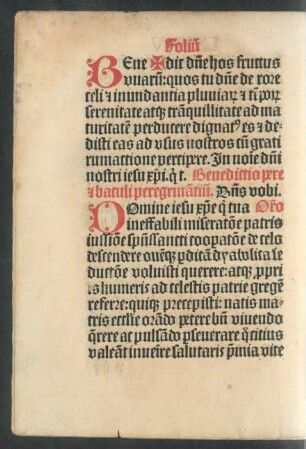 Foliū
BEne ✠ dic dn̄e hos fructus
vuarū: quos tu dn̄e de rore
celi ⁊ inundantia pluuiaꝝ ⁊ tp̄oꝝ
serenitate atqꝫ trāquillitate ad ma
turitatē perducere dignatꝰ es ⁊ de-
disti eas ad vsus nostros cū grati
arumactione percipere. In noīe dn̄i
nostri iesu xp̄i. q̄ t. Benedictio pere
⁊ baculi peregrinātiū. Dn̄s vobi.
DOmine iesu xp̄e q̄ tua Or̄o
ineffabili miseratōne patris
iussiōe sp̄ūssancti cooꝑatōne de celo
descendere ouēqꝫ ꝑditā
ductōne voluisti querere: atqꝫ ꝓprī
is humeris ad celestis patrie gregē
referre: quiqꝫ precepisti: natis ma-
tris ecclīe orādo petere bn̄ viuendo
q̄rere ac pulsādo ꝑseuerare q̄tꝰ citius
valeāt inuēire salutaris p̄mia vite